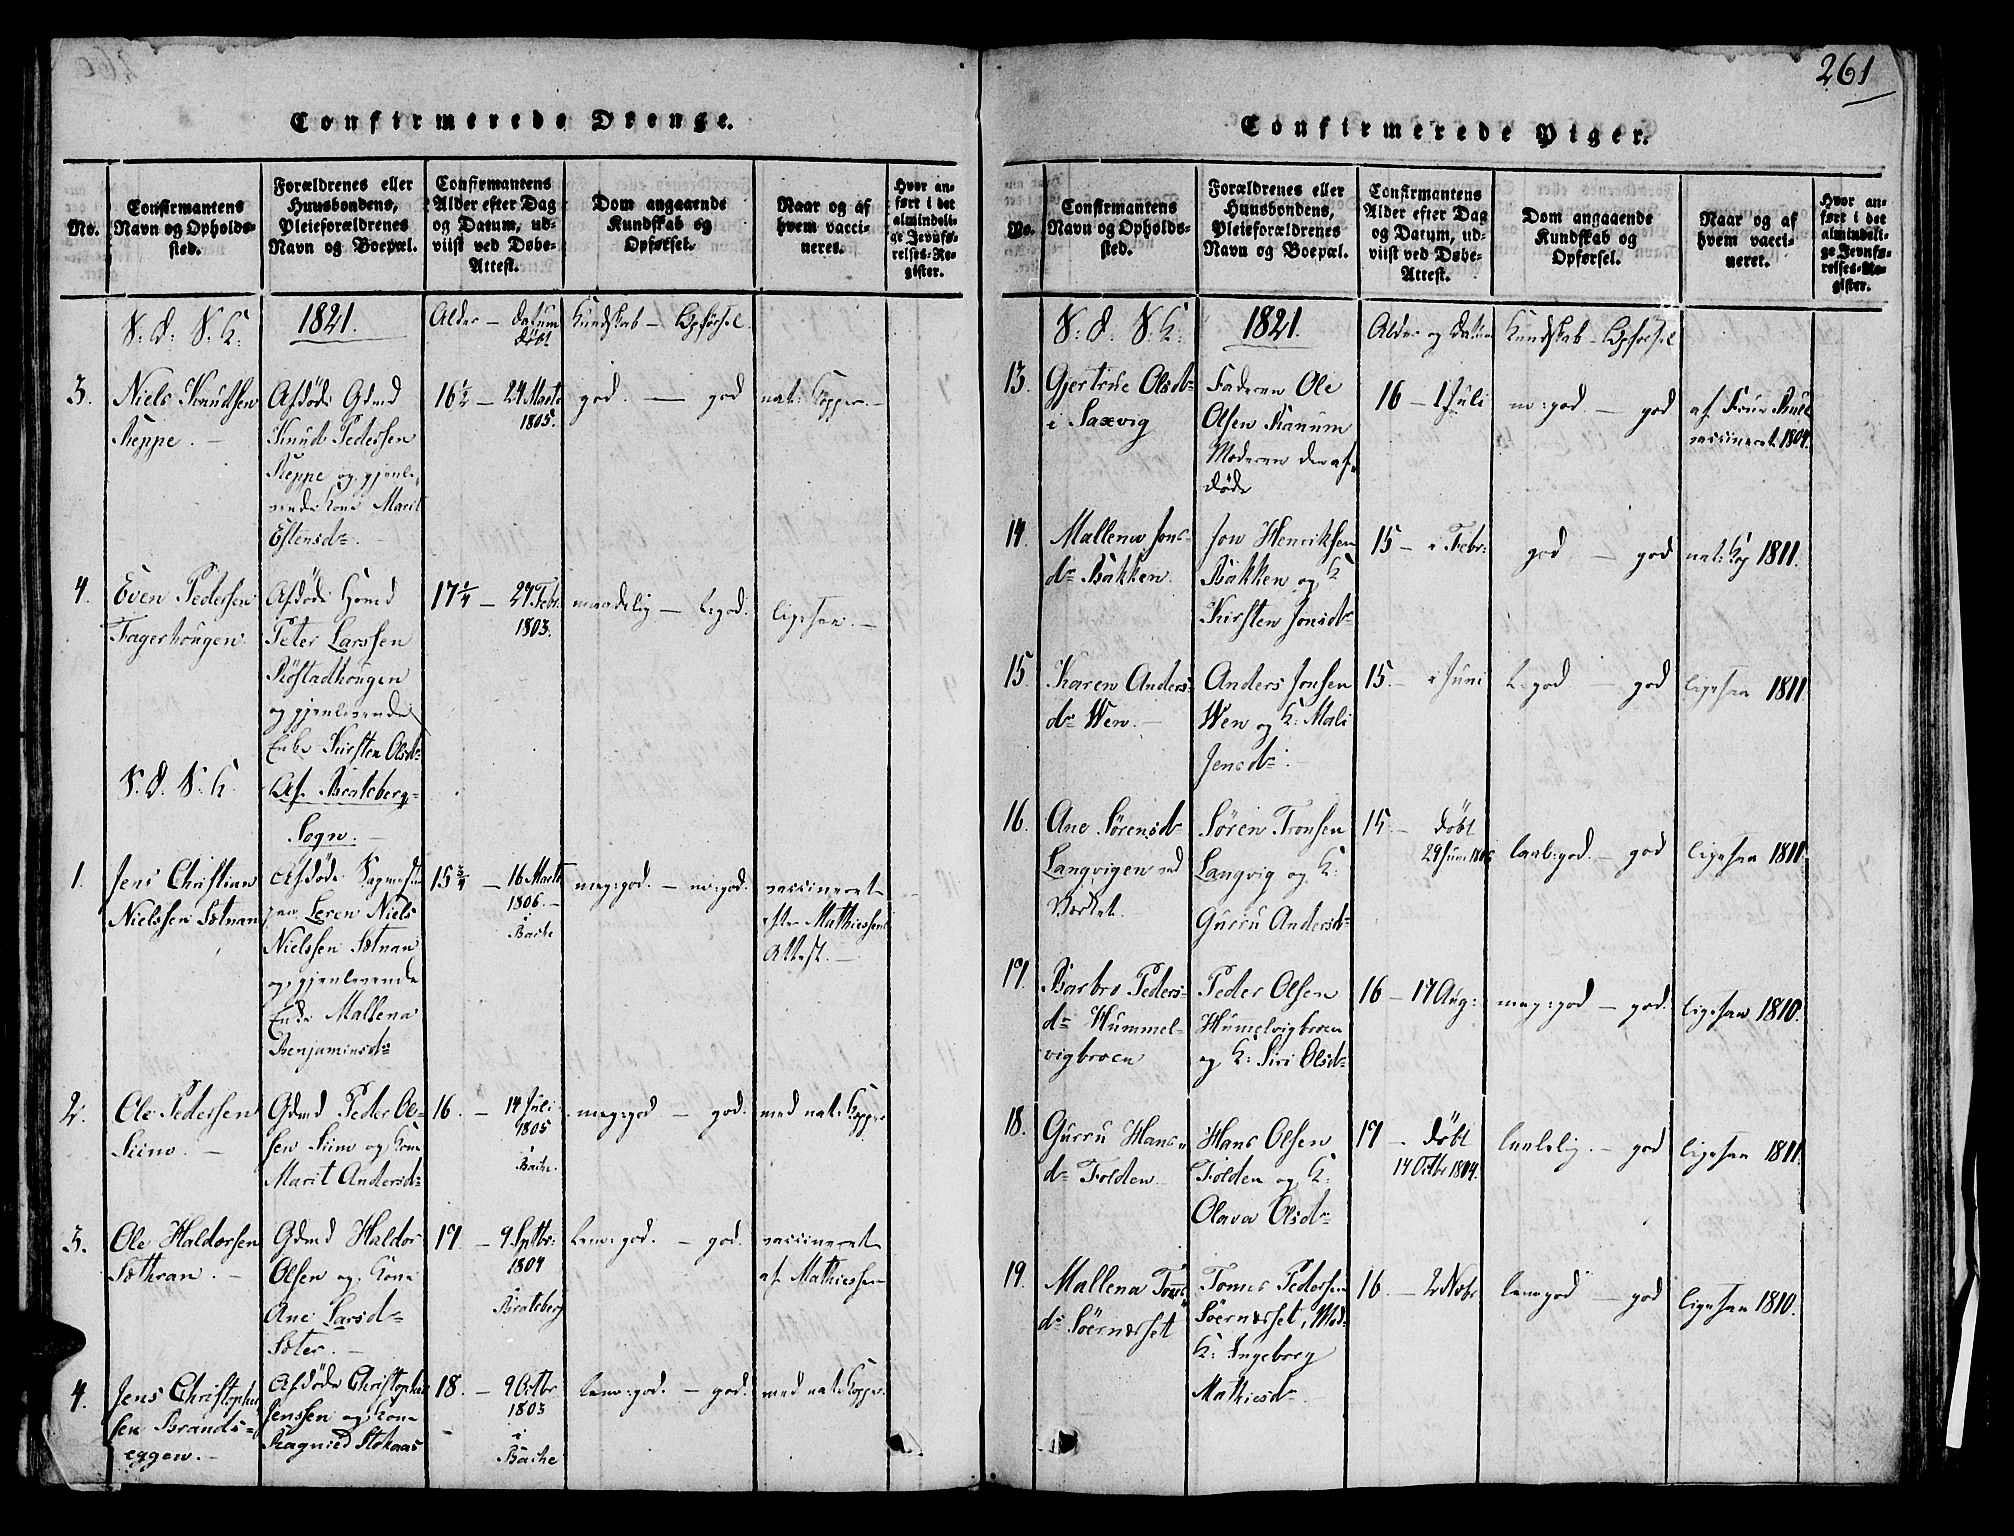 261
Confirmerede Drenge.
No.
Confirmantens
Navn og Opholds-
sted.
Forældrenes eller
Huusbondens,
Pleieforældrenes
Navn og Boepæl.
Confirmantens
Alder efter Dag
og Datum, ud-
viist ved Døbe-
Attest.
Dom angaaende
Kundskab og
Opførsel.
Naar og af
hvem vacci-
neret.
Hvor an-
ført i det
almindeli-
ge Jevnfø-
relses-Re-
gister.
1821.
Alder — Datum
døbt
Kundskab — Opførsel
3.
Niels Knudsen
Reppe.
Afdøde Gdmd
Knud Pederssen
Reppe og gjenle-
vende Kone Marit
Estensdr
16½ — 24 Marts
1805.
god. — god
nat: Kopper.
4.
Even Pedersen
Fagerhougen
Afdøde Huusmd
Peter Larssen
Røstadhougen
og gjenlevende
Enke Kirsten Olsdr
17¼ — 27 Febr.
1803.
maadelig — t: god.
ligesaa.
Af Brateberg
Sogn.
1.
Jens Christian
Nielssen Sotnan
Afdøde
paa Leren Niels
Nielssen Sotnan
og gjenlevende
Enke Mallena
Benjaminsdr
15¾ — 16 Marts
1806.
i
Bache
meg: god. — n: god.
vaccineret
efter Mathiessens
Attest.
2.
Ole Pedersen
Siim.
Gdmd Peder Ol-
sen Siim og Kone
Marit Andersdr
16. — 14 Juli
1805
i
Bache.
meg: god — god.
med nat: Kopper
3.
Ole Haldorsen
Sothran.
Gdmd Haldor
Olsen og Kone
Ane Larsdr
Soter.
17 — 9 Sptbr:
1804
i
Brateberg
tem: god. — god.
vaccineret
af Mathiessen
4.
Jens Christopher
sen Brands-
eggen.
Afdøde Christopher
Jenssen og Kone
Ragnied Stokaas
18. — 9 Octbr.
1803
i
Bache
tem: god. — god.
med nat: Kopper.
Confirmerede Piger.
No.
Confirmantens
Navn og Opholds-
sted.
Forældrenes eller
Huusbondens,
Pleieforældrenes
Navn og Boepæl.
Confirmantens
Alder efter Dag
og Datum, ud-
viist ved Døbe-
Attest.
Dom angaaende
Kundskab og
Opførsel.
Naar og af
hvem vacci-
neret.
Hvor an-
ført i det
almindeli-
ge Jevnfø-
relses-Re-
gister.
1821.
Alder og Datum
Kundskab — Opførsel
13.
Gjertrue Olsdr
i Saxvig
Faderen Ole
Olsen Ranum
Moderen der af-
døde
16 — 1 Juli
n: god. — god
af Frue Buel
vaccineret 1804.
14.
Mallena Jons-
dr Bakken.
Jon Henriksen
Bakken og K
Kirsten Jonsdr
15 — i Febr:
god — god
nat: Kop 1811.
15.
Karen Anders-
dr Wen.
Anders Jonsen
Wen og K: Mali
Jensdr
15. — i Juni
t: god — god
ligesaa 1811.
16.
Ane Sørensdr
Langvigen ved
Værket.
Søren Tronsen
Langvig og K:
Gurru Andersdr
15 — døbt
29 Juni 1806
taal: god. — god
ligesaa 1811.
17.
Barbro Peders-
dr Hummel-
vigbroen
Peder Olsen
Humelvigbroen
og K: Siri Olsdr
16 — 17 Aug:
meg: god — god.
ligesaa 1810.
18.
Gurru Hans-
dr Folden
Hans Olsen
Folden og K:
Olava Olsdr
17 — døbt
14 Octbr 1804.
taalelig. — god
ligesaa 1811.
19.
Mallena Toms-
dr Søernæsset
Tomas Pedersen
Søernæsset, Mod-
K: Ingeborg
Mathiesdr
16. — 2 Novbr
tem: god — god
ligesaa 1810.